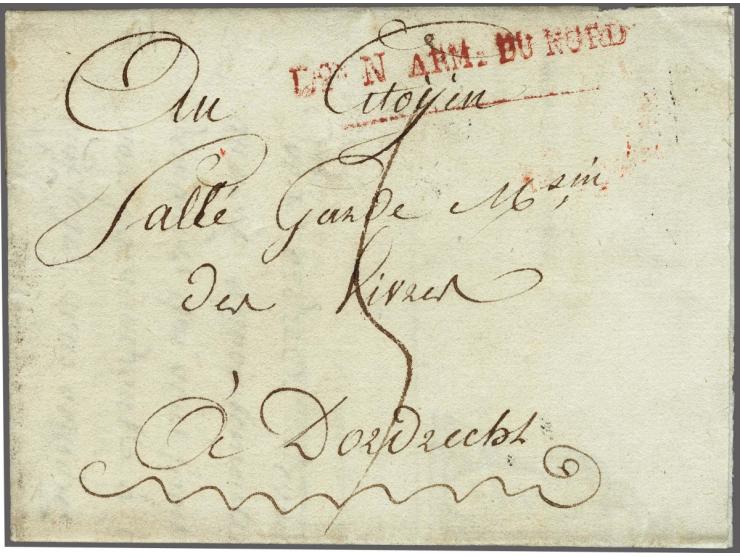 DON N ARM. DU NORD
Au Citoyen
Sallé Garde Msin
des Vivres
à Dordrecht